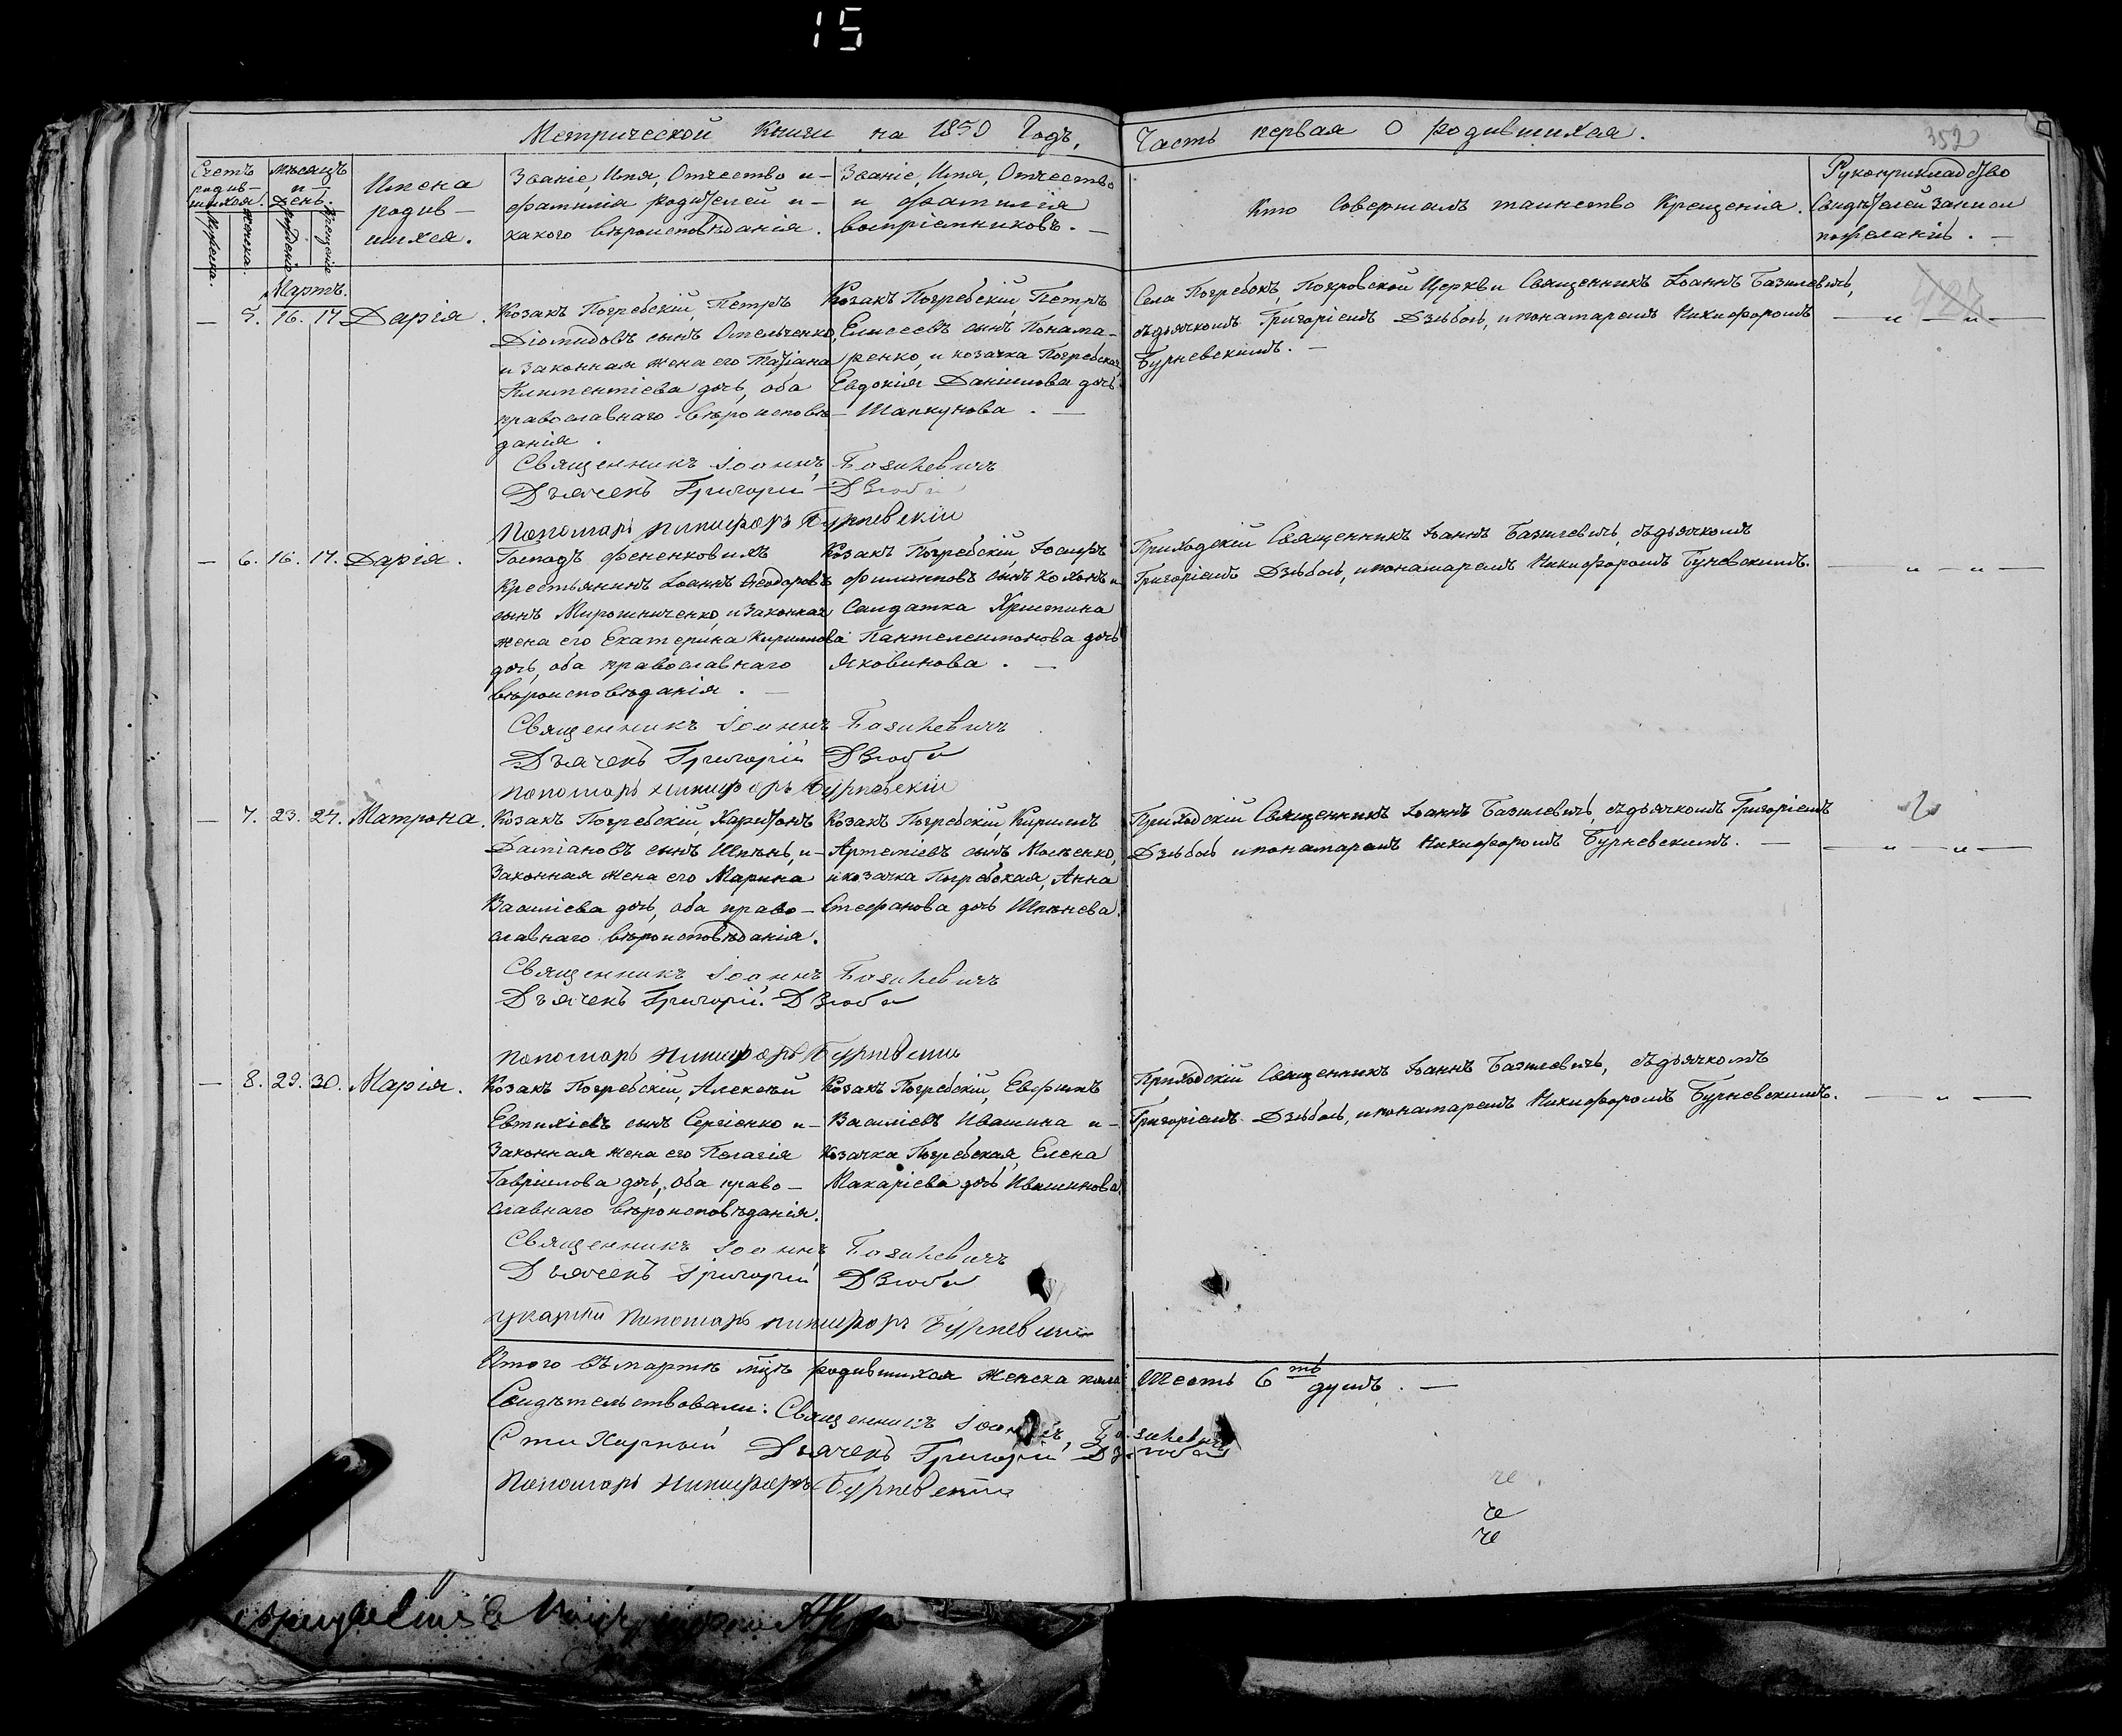 15
Метрической Книги на 1850 Годъ,
Часть первая О родившихся.
352
Счетъ родив-
шихся.
Мужеска.
Женска.
мѣсяцъ
и
день.
рожденія
крещенія
Имена
родив-
шихся.
Званіе, Имя, Отчество и-
фамилія родителей и-
какого вѣроисповѣданія.
Званіе, Имя, Отчество
и фамилія
воспріемниковъ.
Кто совершалъ таинство Крещенія.
Рукоприкладство
Свидѣтелей записи
по желанію.
Мартъ.
— 5. 16. 17. Дарія.
Козакъ Погребскій, Петръ
Діомидовъ сынъ Омельченко,
и законная жена его Татіана
Климентіева дочь, оба
православнаго вѣроисповѣ-
данія.
Козакъ Погребскій, Петръ
Елисеевъ сынъ Понама-
ренко, и козачка Погребская
Евдокія Даніилова дочь
Шапкунова.
Села Погребокъ, Покровской Церкви Священникъ Іоаннъ Базилевичъ,
съ дьячкомъ Григоріемъ Дзюбою, и понамаремъ Никифоромъ
Бурневскимъ.
Священникъ Іоаннъ Базилевичъ
Дьячекъ Григорій Дзюба
Пономарь Никифоръ Бурневскій
— 6. 16. 17. Дарія.
Господъ Фененковыхъ
Крестьянинъ Іоаннъ Ѳеодоровъ
сынъ Мирошниченко, и законная
жена его Екатерина Кирилова
дочь, оба православнаго
вѣроисповѣданія.
Козакъ Погребскій, Іосифъ
Филипповъ сынъ и
Салдатка Христина
Пантелеимонова дочь
Яковинова.
Приходскій Священникъ Іоаннъ Базилевичъ, съ дьячкомъ
Григоріемъ Дзюбою, и понамаремъ Никифоромъ Буневскимъ.
Священникъ Іоаннъ Базилевичъ
Дьячекъ Григорій Дзюба
Пономарь Никифоръ Бурневскій
— 7. 23. 24. Матрона.
Козакъ Погребскій, Харитонъ
Даміановъ сынъ Шпѣнь, и-
Законная жена его Марина
Василіева дочь, оба право-
славнаго вѣроисповѣданія.
Козакъ Погребскій, Кириллъ
Артеміевъ сынъ Мосѣенко,
и козачка Погребская, Анна
Стефанова дочь Шпѣнева.
Приходскій Священникъ Іоаннъ Базилевичъ, съ дьячкомъ Григоріемъ
Дзюбою и понамаремъ Никифоромъ Бурневскимъ.
Священникъ Іоаннъ Базилевичъ
Дьячекъ Григорій Дзюба
Пономарь Никифоръ Бурневскій
— 8. 29. 30. Марія.
Козакъ Погребскій, Алексѣй
Евтихіевъ сынъ Сергіенко и-
Законная жена его Пелагія
Гавріилова дочь, оба право-
славнаго вѣроисповѣданія.
Козакъ Погребскій, Евфимъ
Василіевъ Ивашина и-
Козачка Погребская, Елена
Макаріева дочь Ивашинова
Приходскій Священникъ Іоаннъ Базилевичъ, съ дьячкомъ
Григоріемъ Дзюбою, и понамаремъ Никифоромъ Бурневскимъ.
Священникъ Іоаннъ Базилевичъ
Дьячекъ Григорій Дзюба
Пономарь Никифоръ Бурневскій
Итого въ мартѣ мцѣ родившихся женска пола Шесть 6ть душъ.
Свидѣтельствовали: Священникъ Іоаннъ Базилевичъ
Стихарный Дьячекъ Григорій Дзюба
Пономарь Никифоръ Бурневскій